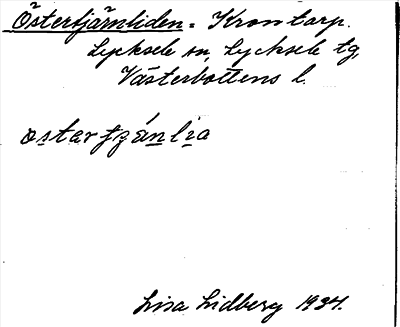 Östertjärnliden = Krontorp.
Lycksele sn, Lycksele tg,
Västerbottens l.
ostartjánlia
Lisa Lidberg 1934.